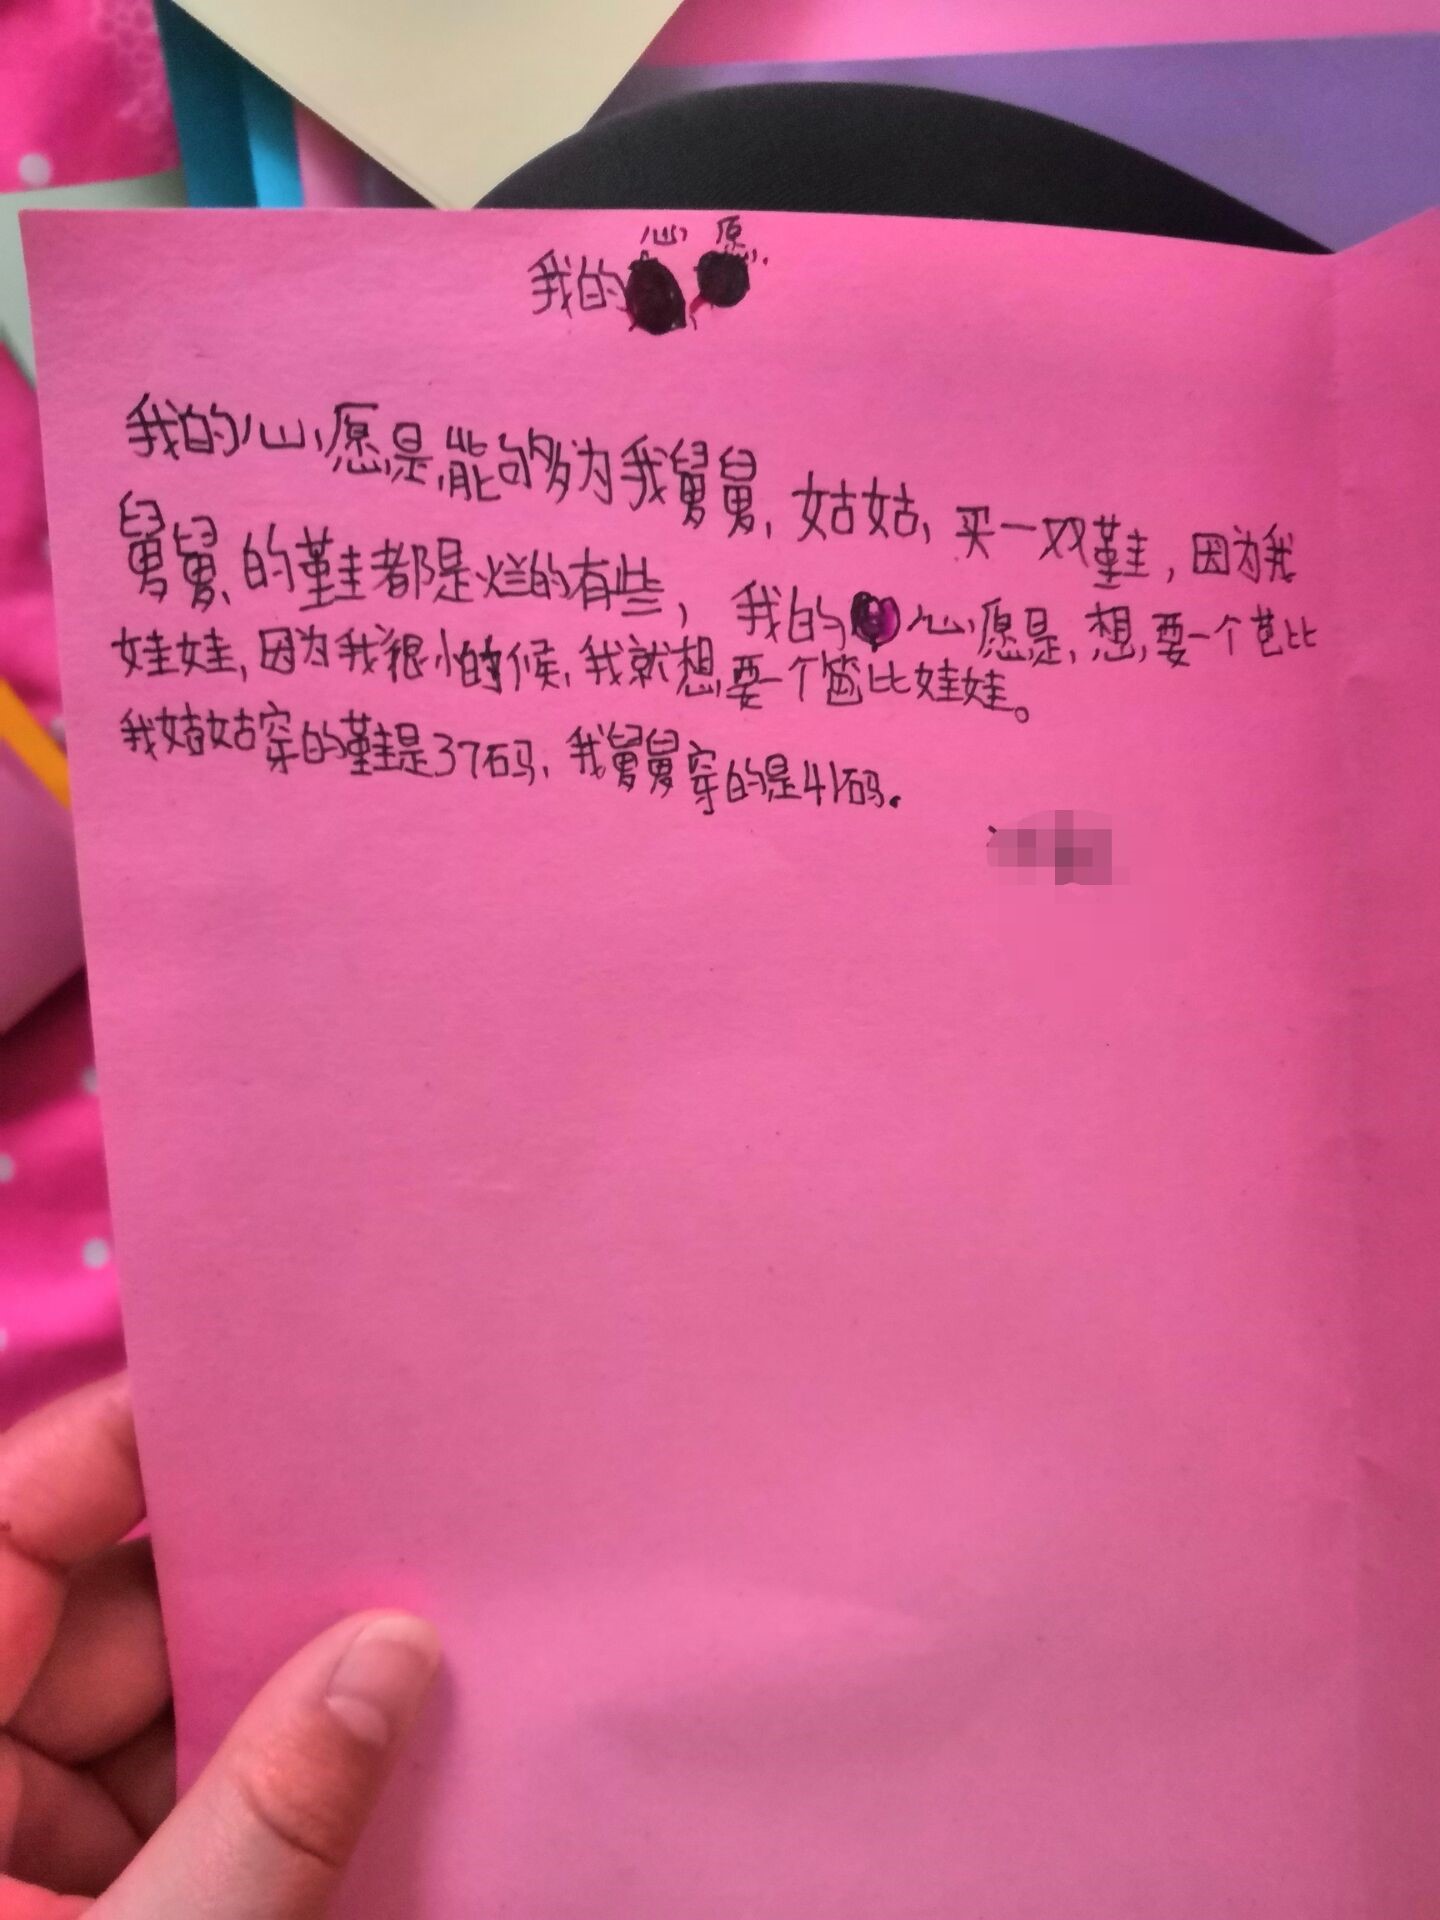 我的心愿
我的心愿是能够为我舅舅,姑姑,买一双鞋,因为我
舅舅,的鞋都是烂的有些,我的心愿是,想,要一个芭比
娃娃,因为我很小的候,我就想,要一个笆比娃娃。
我姑姑穿的鞋是37码,我舅舅穿的是41码.